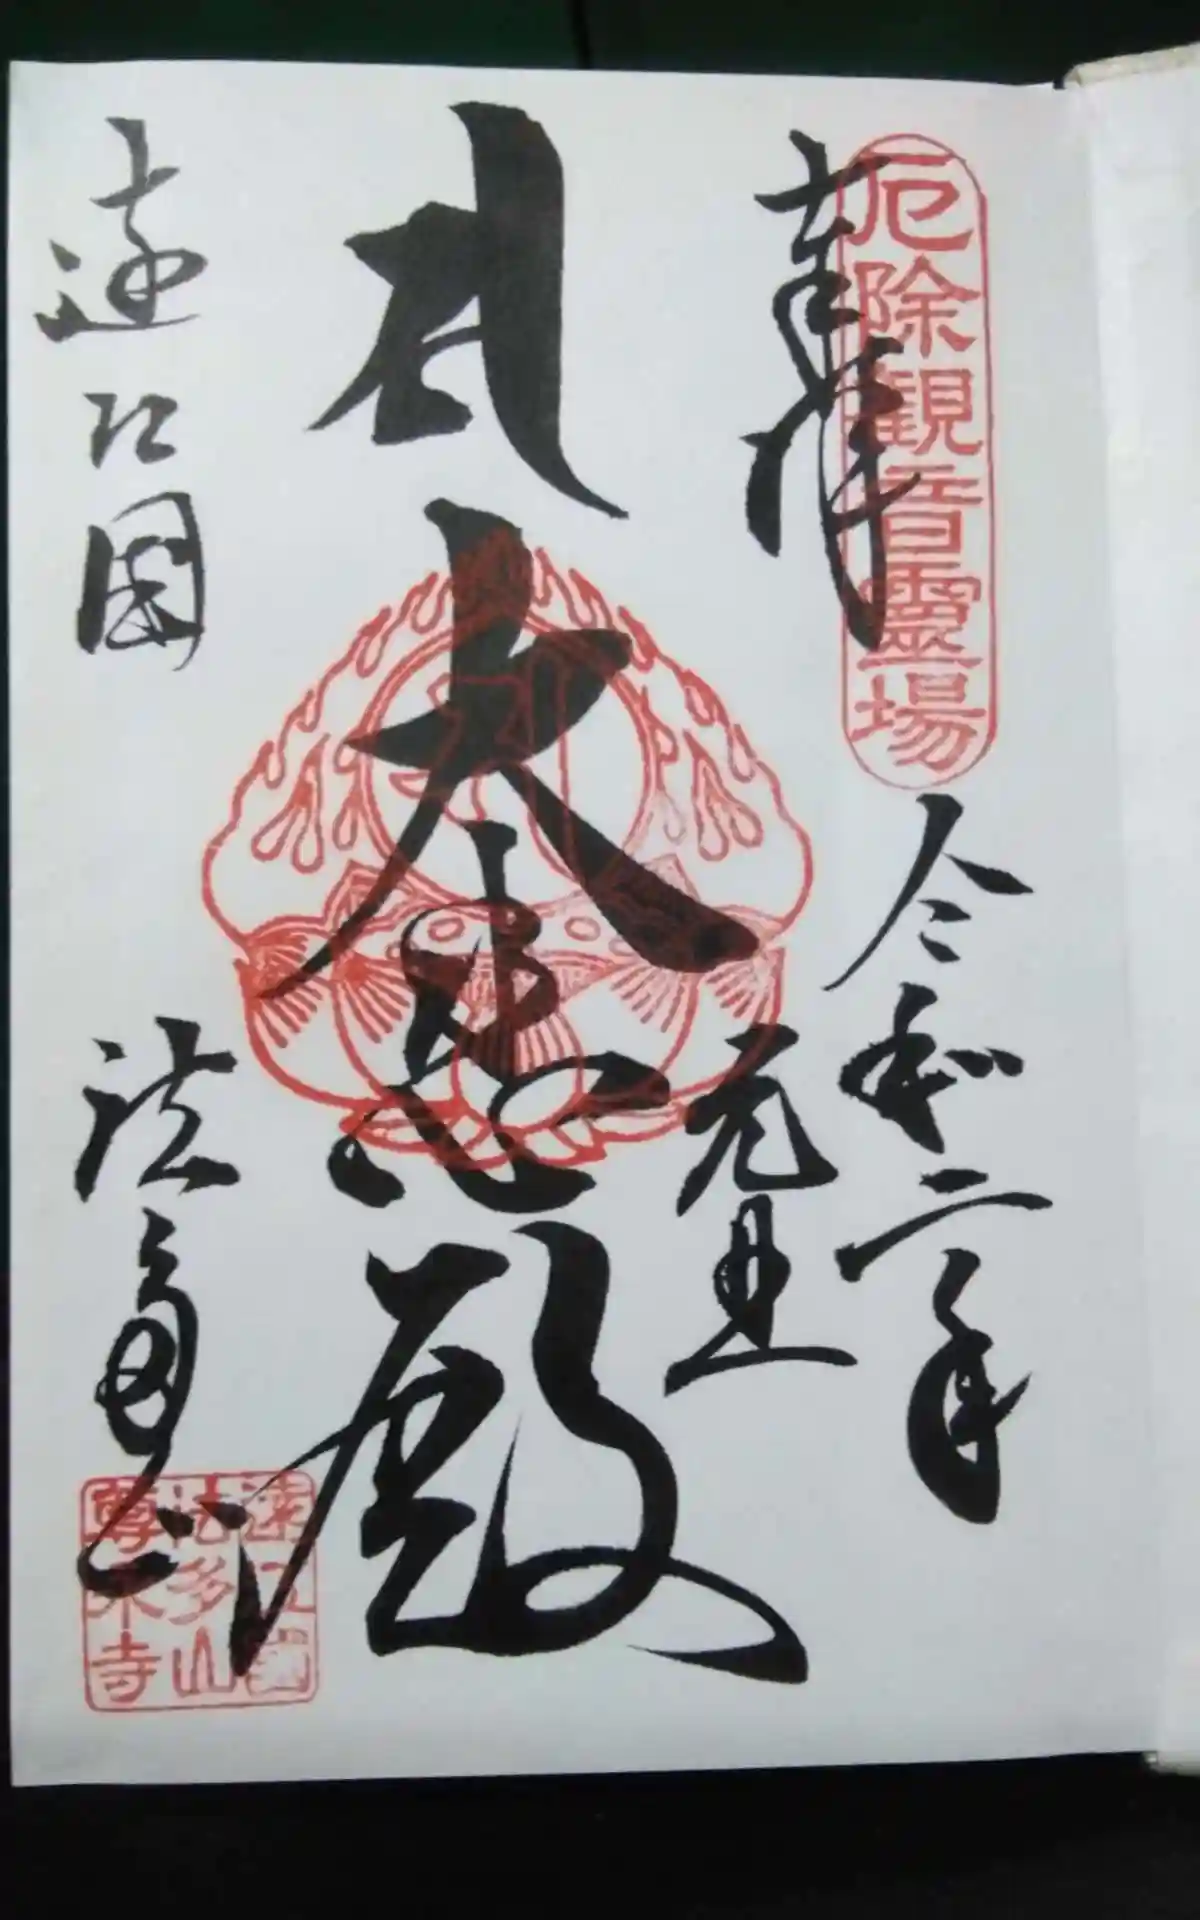 厄除観音霊場
奉拝
令和二年
元旦
大悲殿
遠江国
法多山
遠江國
法多山
尊永寺